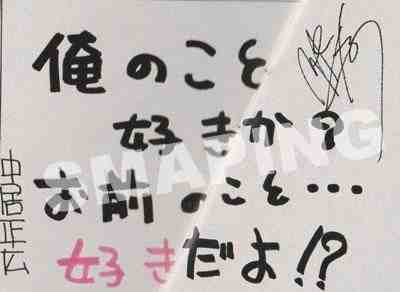 俺のこと
好きか?
お前のこと…
好きだよ!?
中居正広
SMAPING